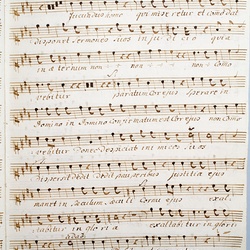 Jucundus homo qui miseretur et comodat
disponet sermones suos in judicio quia
in æternum non non como
vebitur paratum Cor ejus sperare in
Domino in Domino confirmatum est Cor ejus non como
vebitur donec despiciat inimicos suos
Dispersit dedit dedit pauperibus justitia ejus
manet in sæculum sæculi Cornu ejus exal
tabitur in gloria exaltabitur in glori